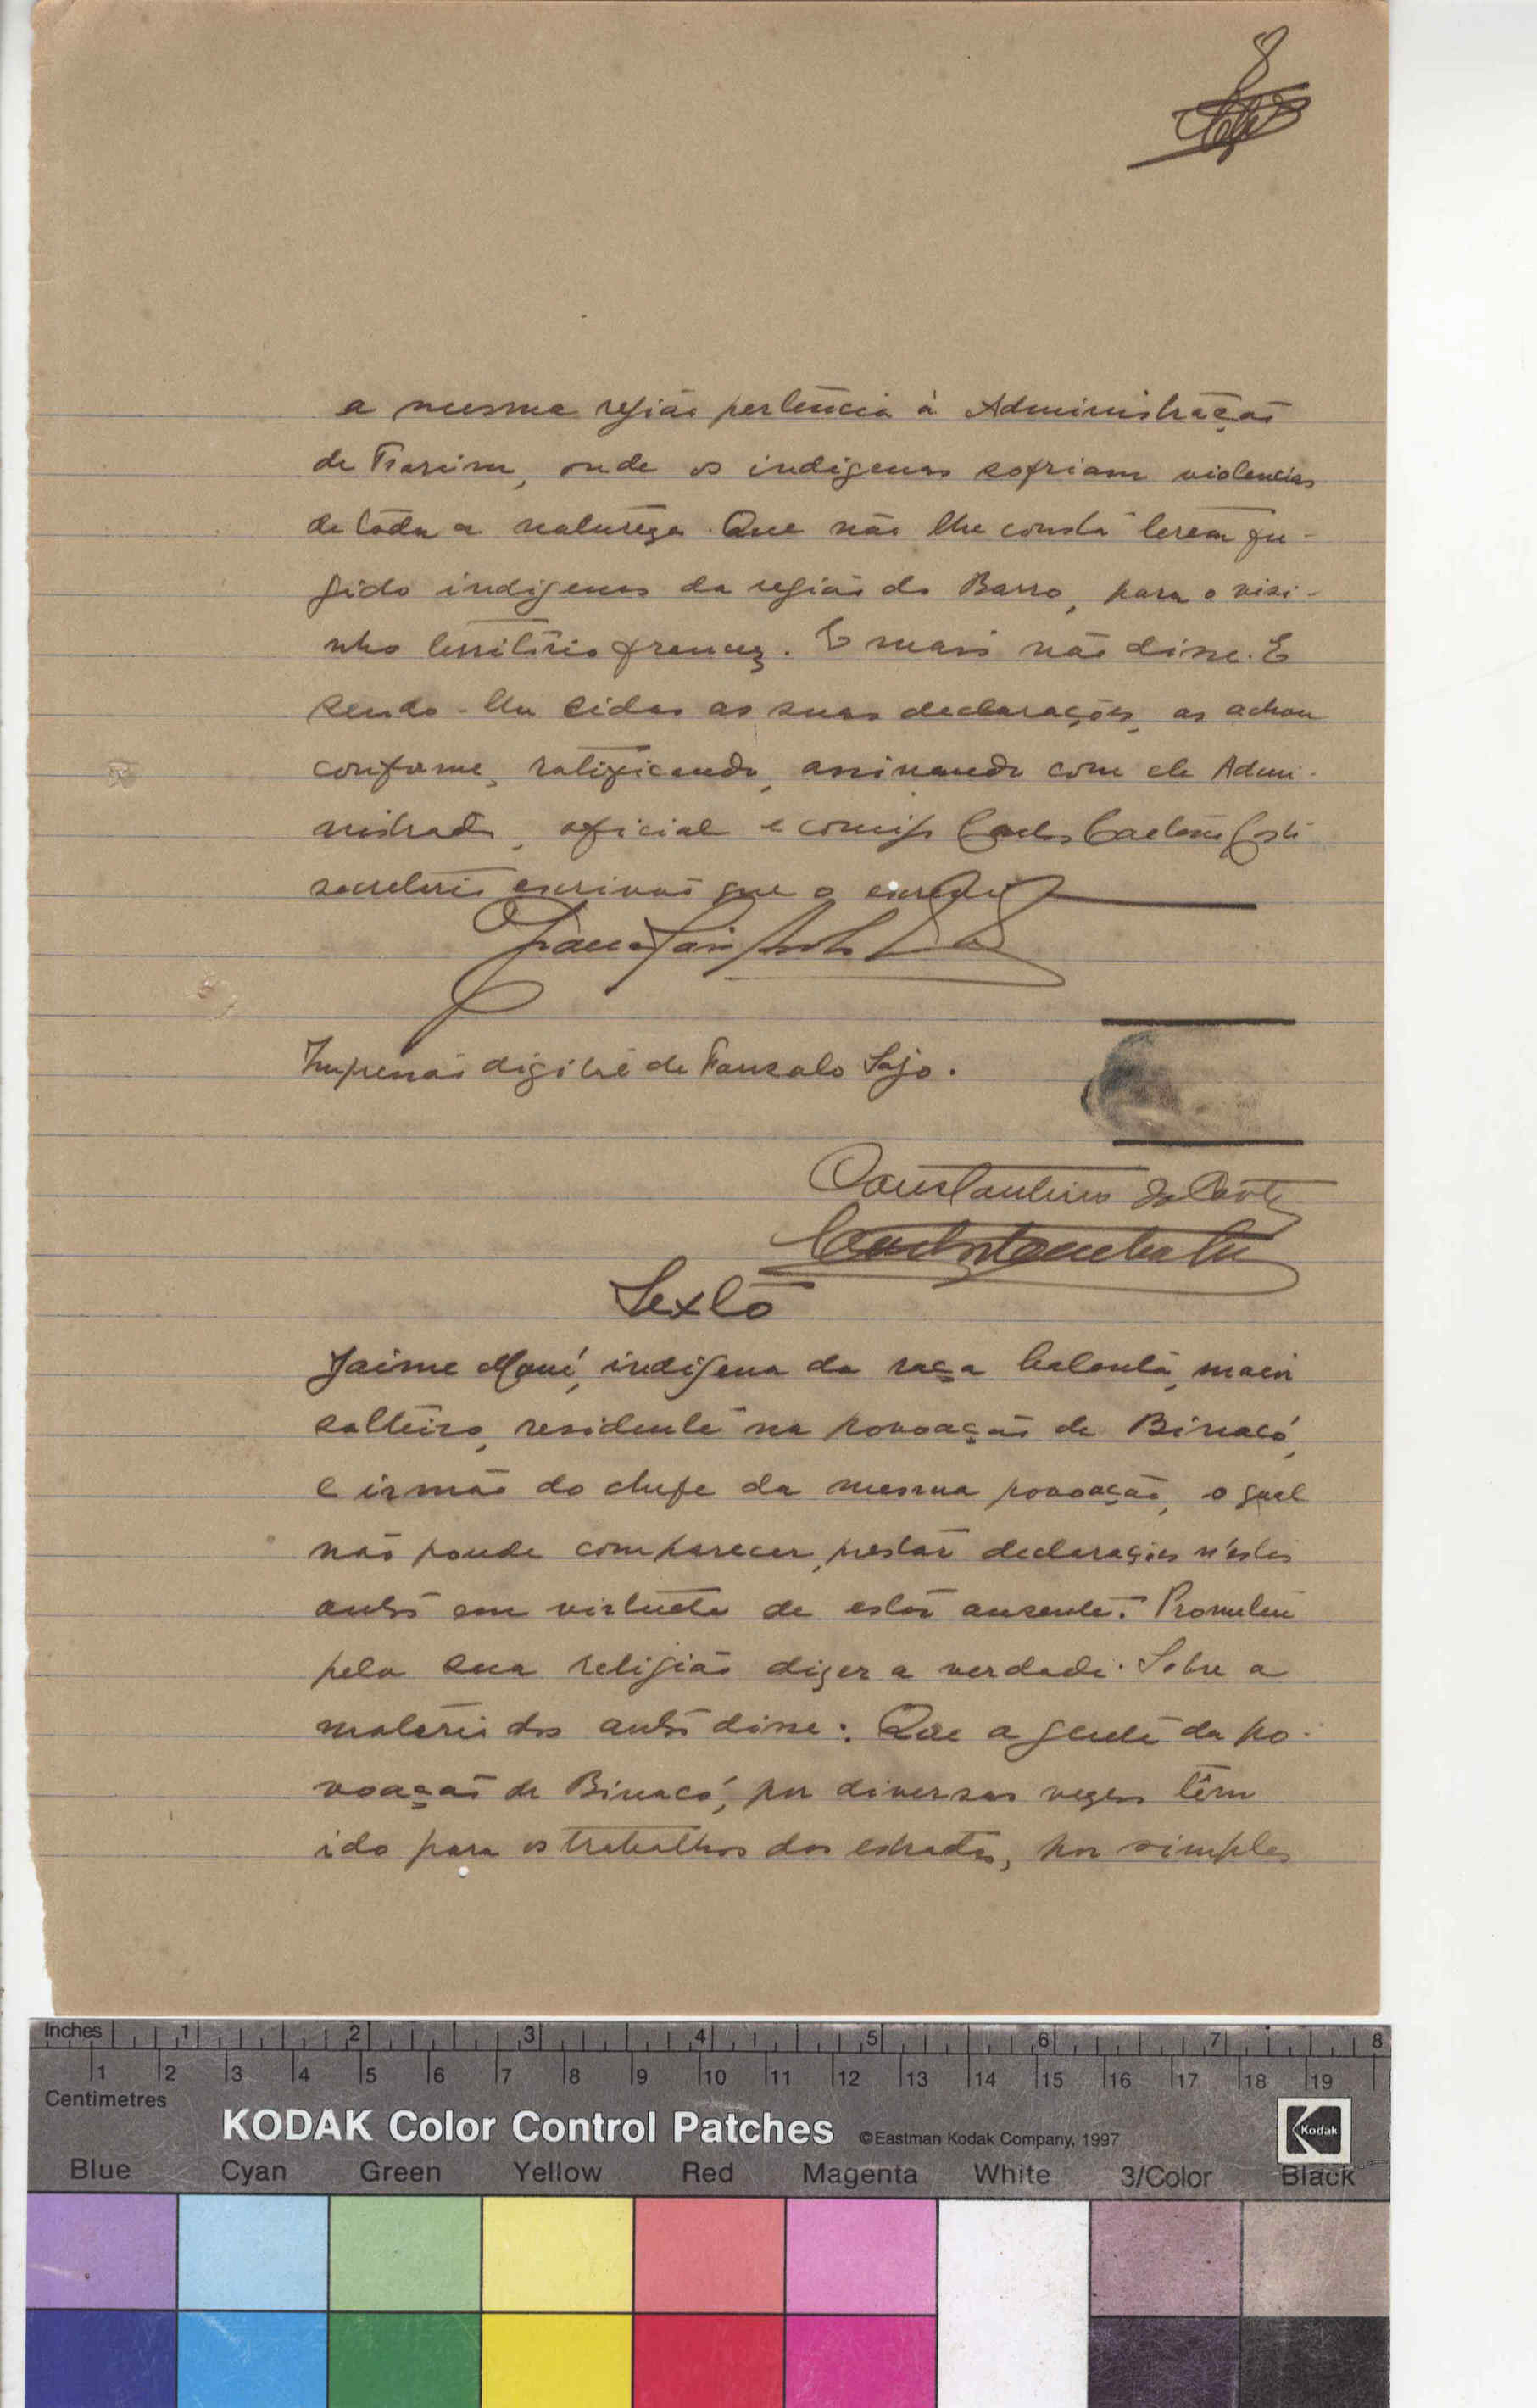 8
a mesma região pertencia á Administração
de Farim, onde os indigenas sofriam violencias
de toda a naturêza. Que não lhe consta terem fu-
gido indigenas da região do Barro, para o visi-
nho território francez. E mais não disse. E
sendo-lhe lidas as suas declarações, as achou
conforme, ratificando, assinando com ele Admi-
nistrador, oficial e comigo Carlos Caetano Costa
secretario escrivão que o escrevi
Impressão digital de Fansalo Sajo.
Constantino da Costa
Sexto
Jaime Mané, indigena da raça balanta, maior
solteiro, residente na povoação de Binacó,
e irmão do chefe da mesma povoação, o qual
não poude comparecer, prestar declarações n'estes
autos em virtude de estar ausente. Prometeu
pela sua religião dizer a verdade. Sobre a
materia dos autos disse: Que a gente da po-
voação de Binacó, por diversas vezes têm
ido para os trabalhos das estradas, por simples
Inches 1 2 3 4 5 6 7 8
1 2 3 4 5 6 7 8 9 10 11 12 13 14 15 16 17 18 19
Centimetres
KODAK Color Control Patches ©Eastman Kodak Company, 1997 Kodak
Blue Cyan Green Yellow Red Magenta White 3/Color Black